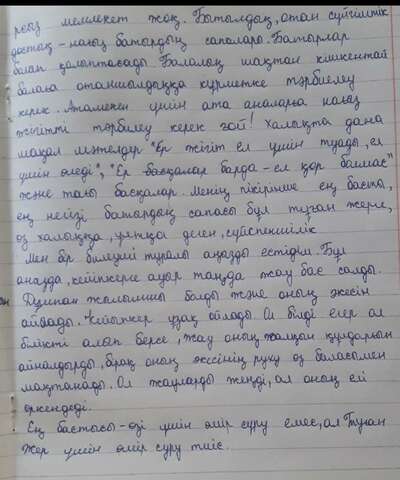 мемлекет жоқ. Батылдық, отан сүйгіштік
достық – нағыз батырдың сапалары. Батырлар
болып қалыптасады Балалық шақтан кішкентай
балаға отаншылдыққа құрметке тәрбиелеу
керек. Атамекен үшін ата аналарға нағыз
жігітті тәрбиелеу керек ғой! Халықта дана
мақал мәтелдер "Ер жігіт ел үшін туады, ел
үшін өледі", "Ер басқалар барда – ел қор болмас"
және тағы басқалар. Менің пікірімше ең басты,
ең негізі батырдың сапасы бұл туған жерге,
өз халыққа, деген, сүйіспеншілік
Мен бір білезікті туралы аңызды естідім. Бұл
аңызда, кейіпкерге ауыр таңда жау бас салды.
Дұшпан жалғыншы болды және оның әкесін
айдады. Кейіпкер ұзақ ойлады Ол білді егер ол
білікті алып берсе, жау оның жалқын құндарын
айналдырды, бірақ оның әкесінің руху өз баласымен
мақтанады. Ол жауларды жеңді, ал оның елі
өркендеді.
Ең бастысы – өзі үшін өмір сүру емес, ал Туған
Жер үшін өмір сүру тиіс.